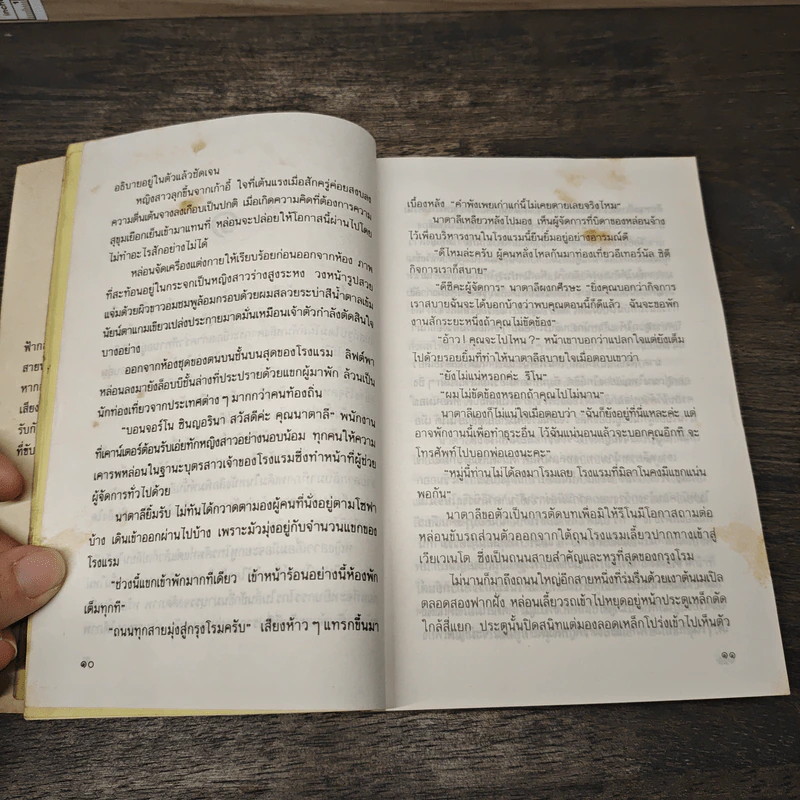 อธิบายอยู่ในตัวแล้วชัดเจน
หญิงสาวลุกขึ้นจากเก้าอี้ ใจที่เต้นแรงเมื่อสักครู่ค่อยสงบลง
ความตื่นเต้นจางลงเกือบเป็นปกติ เมื่อเกิดความคิดที่ต้องการความ
สุขุมเยือกเย็นเข้ามาแทนที่ หล่อนจะปล่อยให้โอกาสนี้ผ่านไปโดย
ไม่ทำอะไรสักอย่างไม่ได้
หล่อนจัดเครื่องแต่งกายให้เรียบร้อยก่อนออกจากห้อง ภาพ
ที่สะท้อนอยู่ในกระจกเป็นหญิงสาวร่างสูงระหง วงหน้ารูปสวย
แจ่มด้วยผิวขาวอมชมพูล้อมกรอบด้วยผมสลวยระบ่าสีน้ำตาลเข้ม
นัยน์ตาแกมเขียวเปล่งประกายมาดมั่นเหมือนเจ้าตัวกำลังตัดสินใจ
บางอย่าง
ออกจากห้องชุดของตนบนชั้นบนสุดของโรงแรม ลิฟต์พา
หล่อนลงมายังล็อบบี้ชั้นล่างที่ประปรายด้วยแขกผู้มาพัก ล้วนเป็น
นักท่องเที่ยวจากประเทศต่าง ๆ มากกว่าคนท้องถิ่น
"บอนจอร์โน ซินญอรินา สวัสดีค่ะ คุณนาตาลี" พนักงาน
ที่เคาน์เตอร์ต้อนรับเอ่ยทักหญิงสาวอย่างนอบน้อม ทุกคนให้ความ
เคารพหล่อนในฐานะบุตรสาวเจ้าของโรงแรมซึ่งทำหน้าที่ผู้ช่วย
ผู้จัดการทั่วไปด้วย
นาตาลียิ้มรับ ไม่ทันได้กวาดตามองผู้คนที่นั่งอยู่ตามโซฟา
บ้าง เดินเข้าออกผ่านไปบ้าง เพราะมัวมุ่งอยู่กับจำนวนแขกของ
โรงแรม
"ช่วงนี้แขกเข้าพักมากทีเดียว เข้าหน้าร้อนอย่างนี้ห้องพัก
เต็มทุกที"
"ถนนทุกสายมุ่งสู่กรุงโรมครับ" เสียงห้าว ๆ แทรกขึ้นมา
๑๐
เบื้องหลัง "คำพังเพยเก่าแก่นี้ไม่เคยตายเลยจริงไหม"
นาตาลีเหลียวหลังไปมอง เห็นผู้จัดการที่บิดาของหล่อนจ้าง
ไว้เพื่อบริหารงานในโรงแรมนี้ยืนยิ้มอยู่อย่างอารมณ์ดี
"ดีไหมล่ะครับ ผู้คนหลั่งไหลกันมาท่องเที่ยวอีเทอร์นัล ซิตี
กิจการเราก็สบาย"
"ดีซิคะผู้จัดการ" นาตาลีผงกศีรษะ "ยิ่งคุณบอกว่ากิจการ
เราสบายฉันจะได้บอกบ้างว่าพบคุณตอนนี้ก็ดีแล้ว ฉันจะขอพัก
งานสักระยะหนึ่งถ้าคุณไม่ขัดข้อง"
"อ้าว! คุณจะไปไหน?" หน้าเขาบอกว่าแปลกใจแต่ยังเต็ม
ไปด้วยรอยยิ้มที่ทำให้นาตาลีสบายใจเมื่อตอบเขาว่า
"ยังไม่แน่หรอกค่ะ รีโน"
"ผมไม่ขัดข้องหรอกถ้าคุณไปไม่นาน"
นาตาลีเองก็ไม่แน่ใจเมื่อตอบว่า "ฉันก็ยังอยู่ที่นี่แหละค่ะ แต่
อาจพักงานนี้เพื่อทำธุระอื่น ไว้ฉันแน่นอนแล้วจะบอกคุณอีกที จะ
โทรศัพท์ไปบอกพ่อเองนะคะ"
"หมู่นี้ท่านไม่ได้ลงมาโรมเลย โรงแรมที่มิลาโนคงมีแขกแน่น
พอกัน"
นาตาลีขอตัวเป็นการตัดบทเพื่อมิให้รีโนมีโอกาสถามต่อ
หล่อนขับรถส่วนตัวออกจากใต้ถุนโรงแรมเลี้ยวปากทางเข้าสู่
เวียเวเนโต ซึ่งเป็นถนนสายสำคัญและหรูที่สุดของกรุงโรม
ไม่นานก็มาถึงถนนใหญ่อีกสายหนึ่งที่ร่มรื่นด้วยเงาต้นเมเปิล
ตลอดสองฟากฝั่ง หล่อนเลี้ยวรถเข้าไปหยุดอยู่หน้าประตูเหล็กดัด
ใกล้สี่แยก ประตูนั้นปิดสนิทแต่มองลอดเหล็กโปร่งเข้าไปเห็นตัว
๑๑